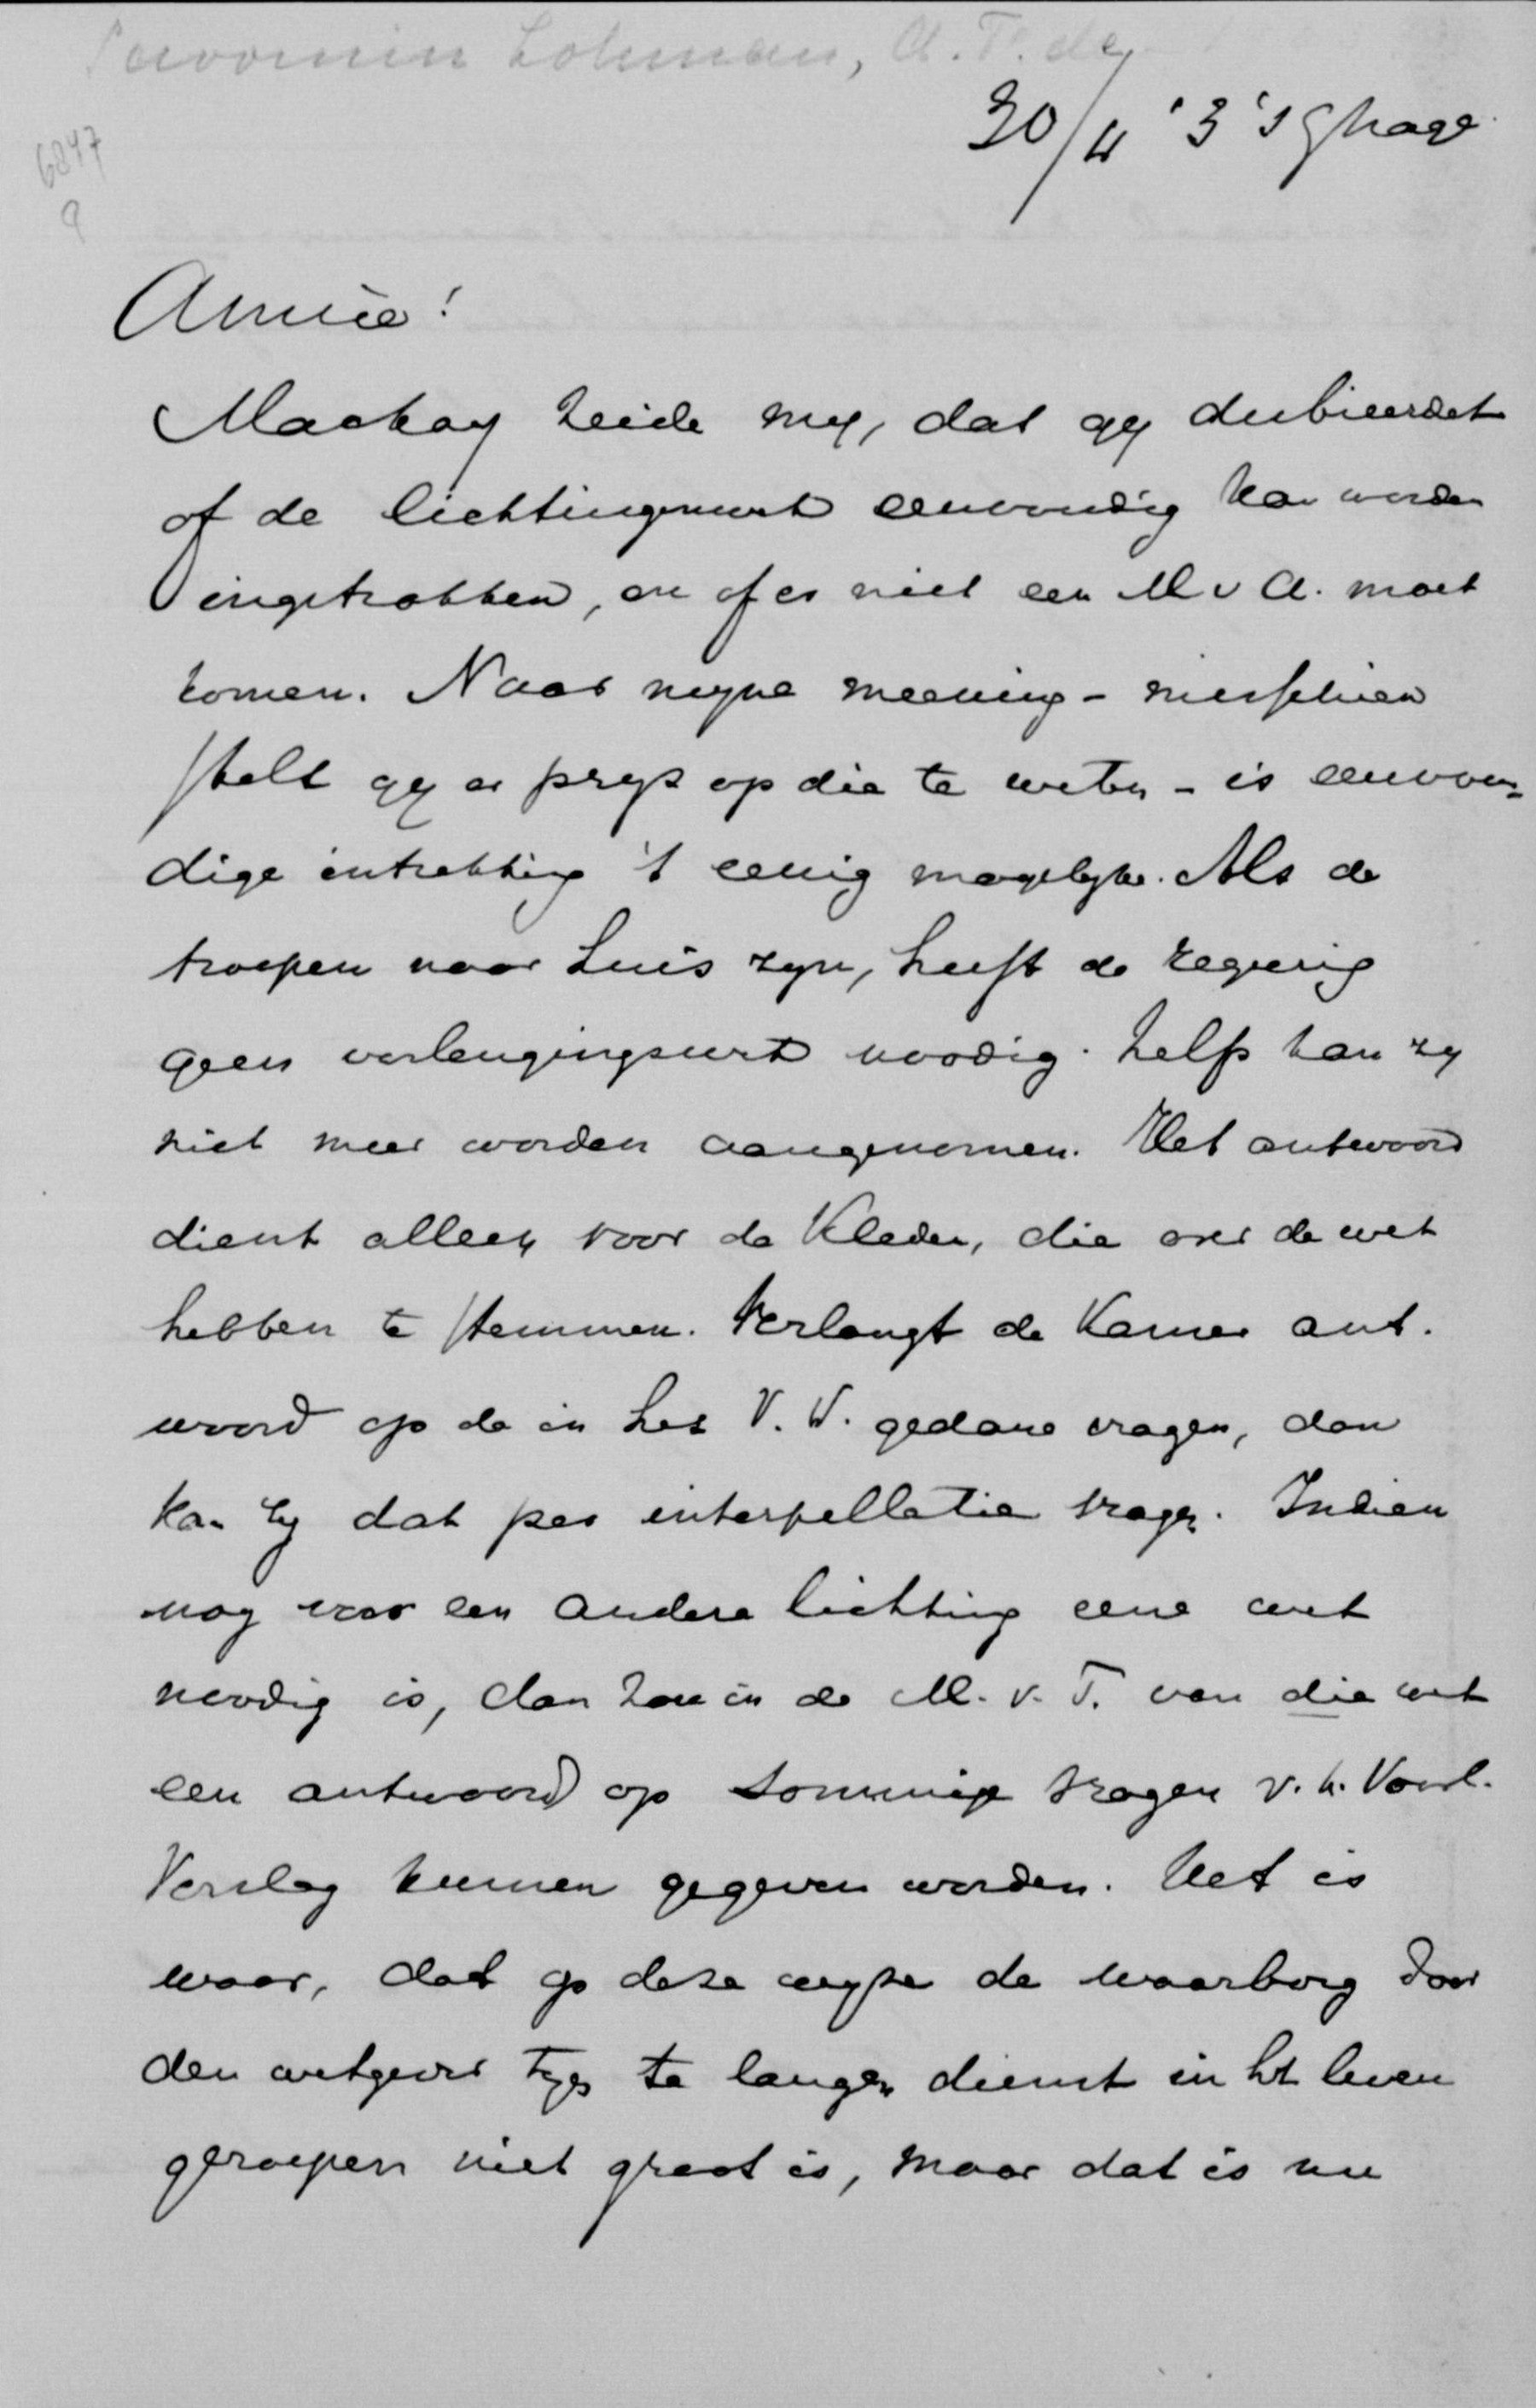 Savornin Lohman, A.F. de
30/4 '3 's Ghage
6847
9
Amice!
Mackay zeide my, dat gy dubieerdet
of de lichtingswet eenvoudig kan worden
ingetrokken, en of er niet een M v A. moet
komen. Naar myne meening - misschien
stelt gy er prys op die te weten - is eenvou-
dige intrekking 't eenig mogelyke. Als de
troepen naar huis zyn, heeft de regeering
geen verlengingswet noodig. Zelfs kan zy
niet meer worden aangenomen. Het antwoord
dient alleen voor de Kleden, die over de wet
hebben te stemmen. Verlangt de Kamer ant-
woord op de in het V.V. gedane vragen, dan
kan zy dat per interpellatie vragen. Indien
nog voor een andere lichting eene wet
noodig is, dan zou in de M. v. T. van die wet
een antwoord op sommige vragen v. h. Voorl.
Verslag kunnen gegeven worden. Het is
waar, dat op deze wyze de waarborg door
den wetgever tegen te langen dienst in ht leven
geroepen niet groot is, maar dat is nu